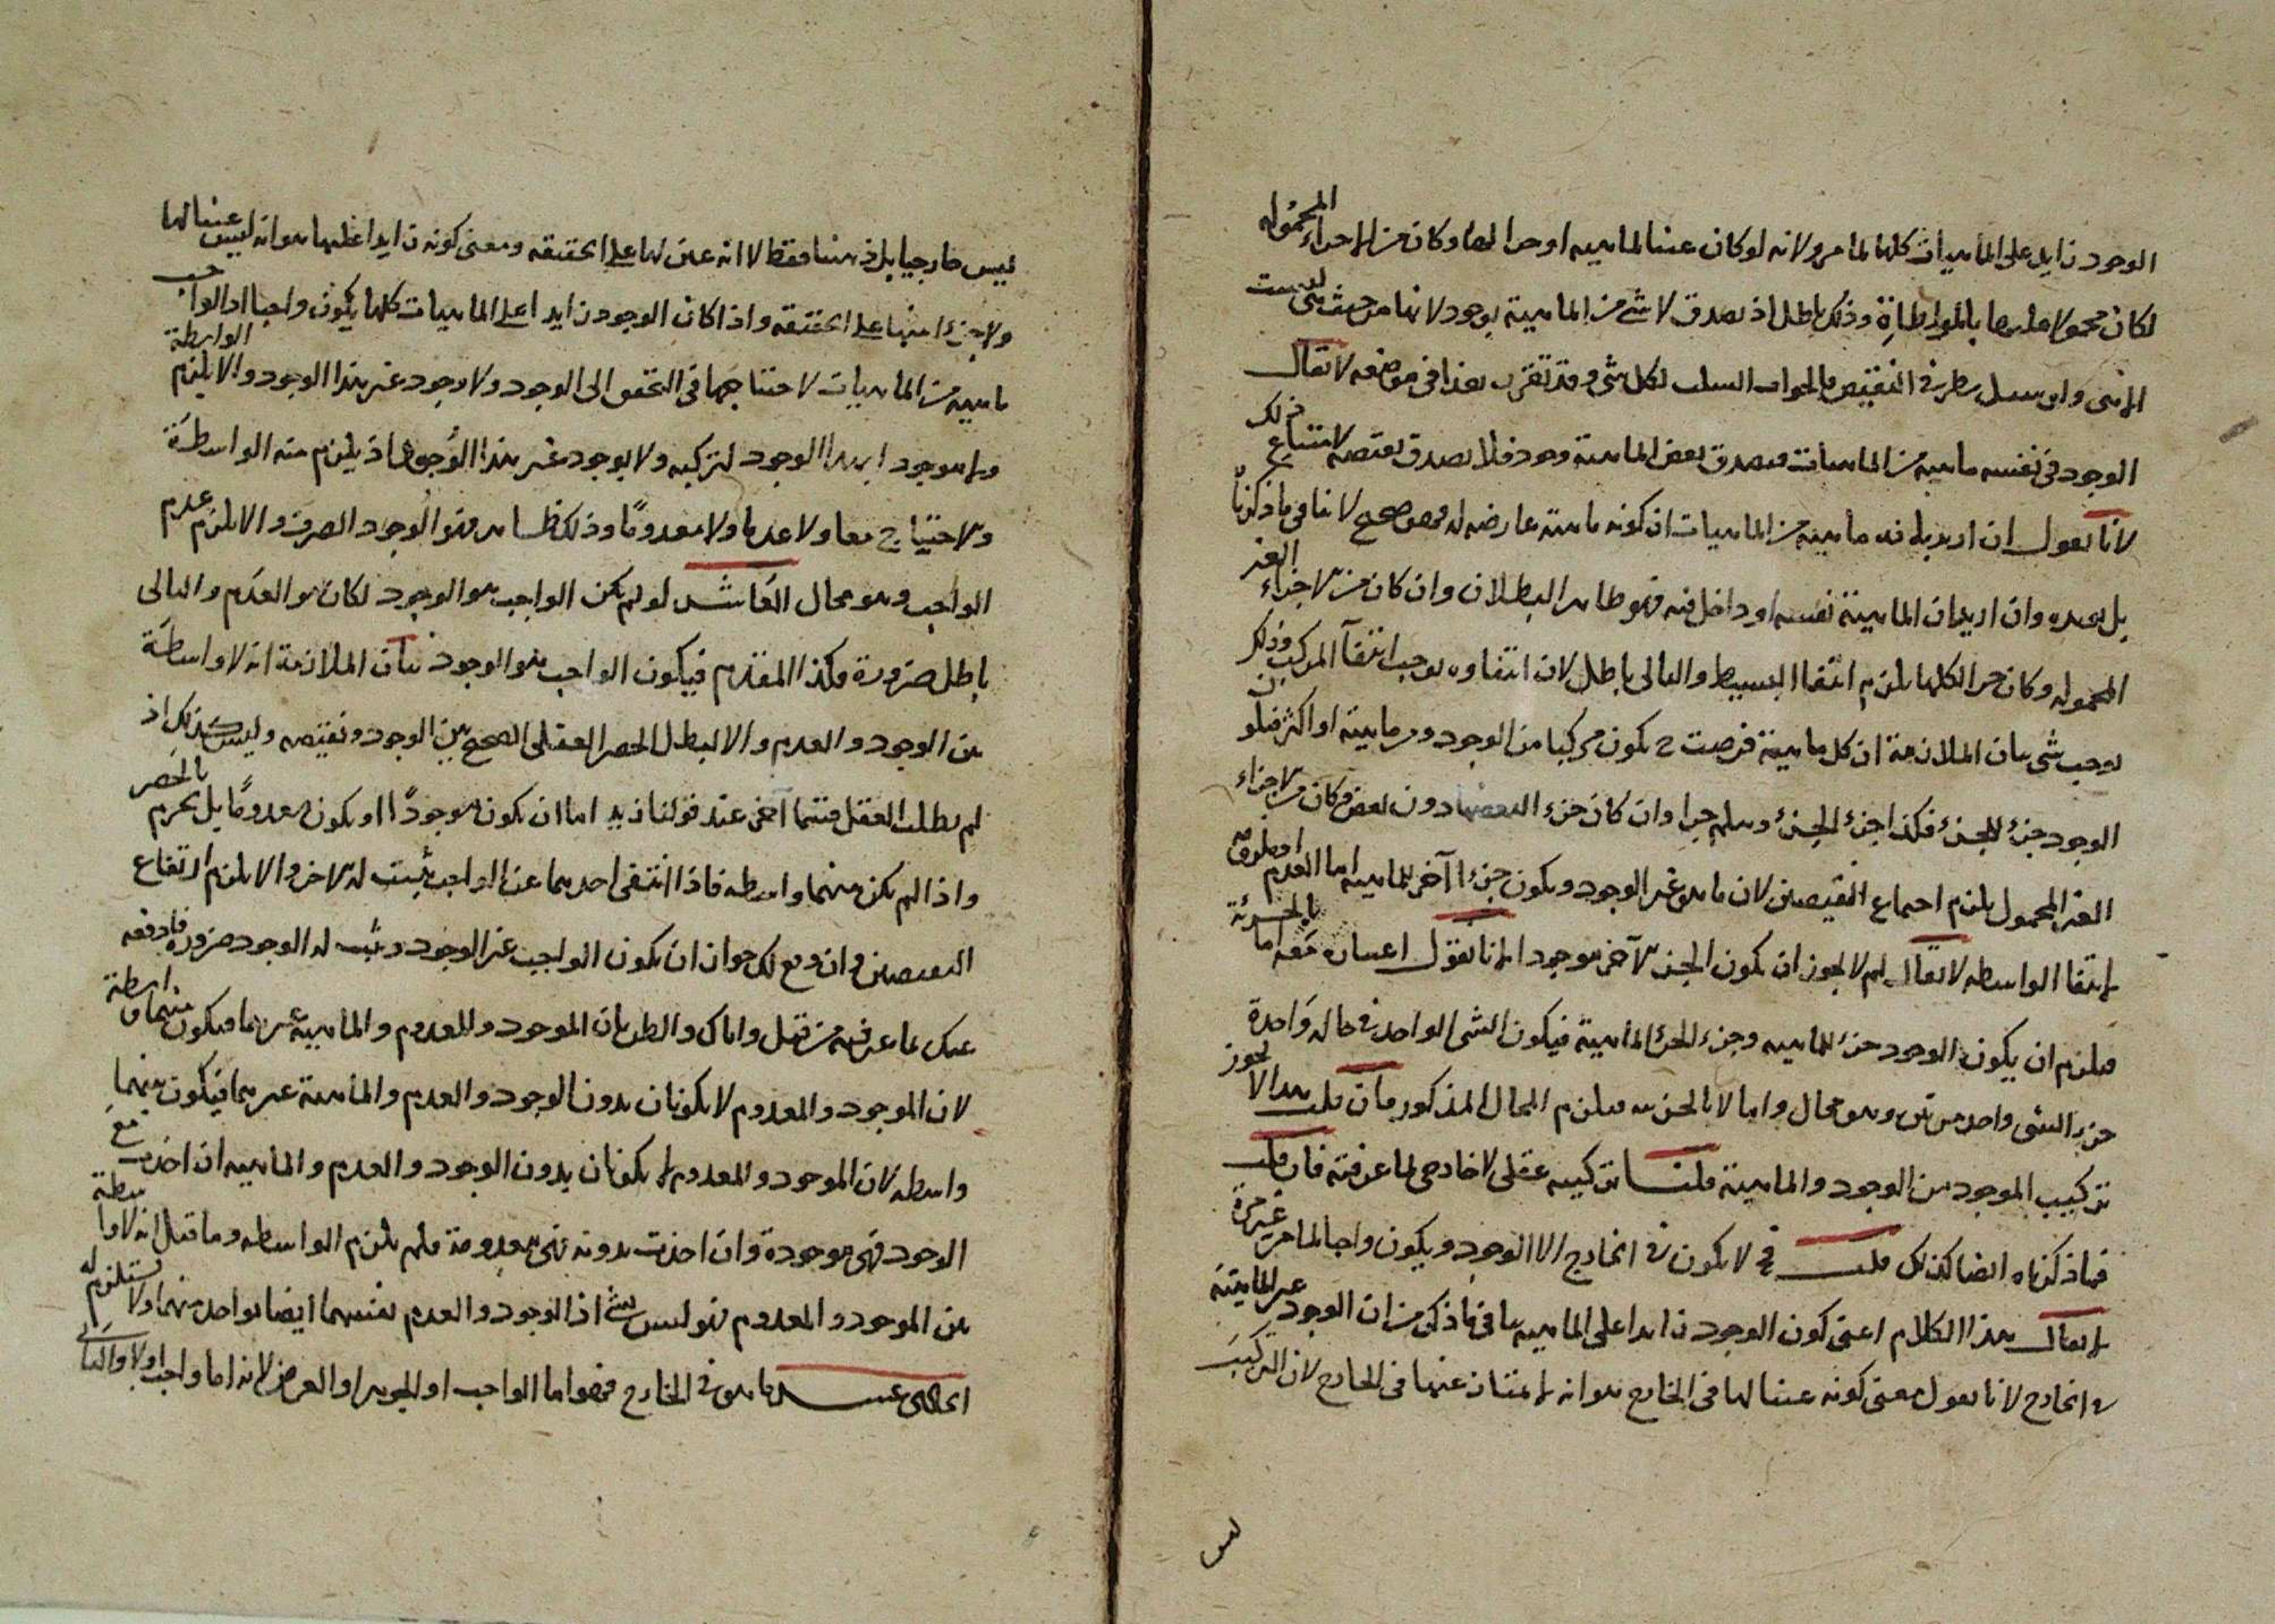 الوجود زايد على الماهيات كلها لما مر ولانه لو كان عينا لماهيه او جزا لها وكان من الاجزاء المحموله
لكان محمولا عليها بالمواطاة وذلك باطل اذ يصدق لا شي من الماهية بوجود لانها من حيث هي ليست
الا هي ولو سيل بطرفي النقيض فالجواب السلب لكل شي وقد تقرر هذا في موضعه لا يقال
الوجود في نفسه ماهيه من الماهيات فيصدق بعض الماهية وجود فلا يصدق نقيضه لامتناع ذلك
لانا نقول ان اريد بانه ماهيه من الماهيات ان كونه ماهية عارضه له فهو صحيح لا ينافي ما ذكرناه
بل يويده وان اريد ان الماهية نفسه او داخل فيه فهو ظاهر البطلان وان كان من الاجزاء الغير
المحموله وكان جزا لكلها يلزم انتفا البسيط والتالي باطل لان انتفاوه يوجب انتفآ المركب وذلك
يوجب شي بيان الملازمة ان كل ماهية فرضت ح يكون مركبا من الوجود ومن ماهية او اكثر فيلو ن
الوجود جزء للجزء فكذا جزء الجزء وهلم جرا وان كان جزء البعضها دون بعض وكان من الاجزاء
الغير المحمول يلزم اجتماع النقيضين لان ما هو غير الوجود ويكون جزءا آخر للماهيه اما العدم او ملزومه
لانتفا الواسطه لا يقال لم لا يجوز ان يكون الجزء الآخر موجودا لانا نقول اعتباره معه اما بالجزئية
فيلزم ان يكون الوجود جزء للماهيه وجزء للجزء الماهية فيكون الشي الواحد في حاله واحدة
جزء الشي واحد مرتين وهو محال واما لا بالجزئيه فيلزم المحال المذكور فان قلت هذا لا يجوز
تركيب الموجود من الوجود والماهية قلنا تركيبه عقلي لا خارجي لما عرفته فان قلت
فما ذكرناه ايضا كذلك قلت فح لا يكون في الخارج الا الوجود ويكون واجبا لما مر غير مرة
لا يقال هذا الكلام اعني كون الوجود زايدا على الماهيه ينافي ما ذكر من ان الوجود عين الماهية
في الخارج لانا نقول معنى كونه عينا لها في الخارج هو انه لا يمتاز عنها في الخارج لان التركيب
ليس
ليس خارجيا بل ذهنيا فقط لا انه عين لها على الحقيقه ومعنى كونه زايدا عليها هو انه ليس عينا لها
ولا جزءا منها على الحقيقه واذا كان الوجود زايدا على الماهيات كلها يكون واجبا اذ الواجب
ماهيه من الماهيات لاحتياجها في التحقق الى الوجود ولا وجود غير هذا الوجود والا يلزم الواسطة
ولا موجود بهذا الوجود لتركبه ولا بوجود غير هذا الوجود اذ يلزم منه الواسطة
والاحتياج معا ولا عدما ولا معدوما وذلك ظاهر فهو الوجود الصرف والا يلزم عدم
الواجب وهو محال العاشر لو لم يكن الواجب هو الوجود لكان هو العدم والتالي
باطل ضرورة فكذا المقدم فيكون الواجب هو الوجود بيان الملازمة انه لا واسطة
بين الوجود والعدم والا لبطل الحصر العقلي الصحيح بين الوجود ونقيضه وليس كذلك اذ
لم يطلب العقل قسما آخر عند قولنا زيد اما ان يكون موجودًا او يكون معدومًا بل يجزم بالحصر
واذا لم يكن بينهما واسطه فاذا انتفى احدهما عن الواجب يثبت له الاخر والا يلزم ارتفاع
النقيضين وان وقع لك جواز ان يكون الواجب غير الوجود ويثبت له الوجود ضرورة فادفعه
عنك بما عرفته من قبل واياك والظن بان الموجود والمعدوم والماهية غيرهما فيكون بينهما واسطة
لان الموجود والمعدوم لا يكونان بدون الوجود والعدم والماهية غيرهما فيكون بينهما
واسطه لان الموجود والمعدوم لا يكونان بدون الوجود والعدم والماهيه ان اخذت مع
الوجود فهي موجودة وان اخذت بدونه فهي معدومة فلم يلزم الواسطه وما قيل انه لا واسطة
بين الموجود والمعدوم فهو ليس بشي اذ الوجود والعدم نفسهما ايضا واحد منهما ولا يستلزم له
الحادي عشر ما هو في الخارج فهو اما الواجب او الجوهر او العرض لانه اما واجب او لا والثاني